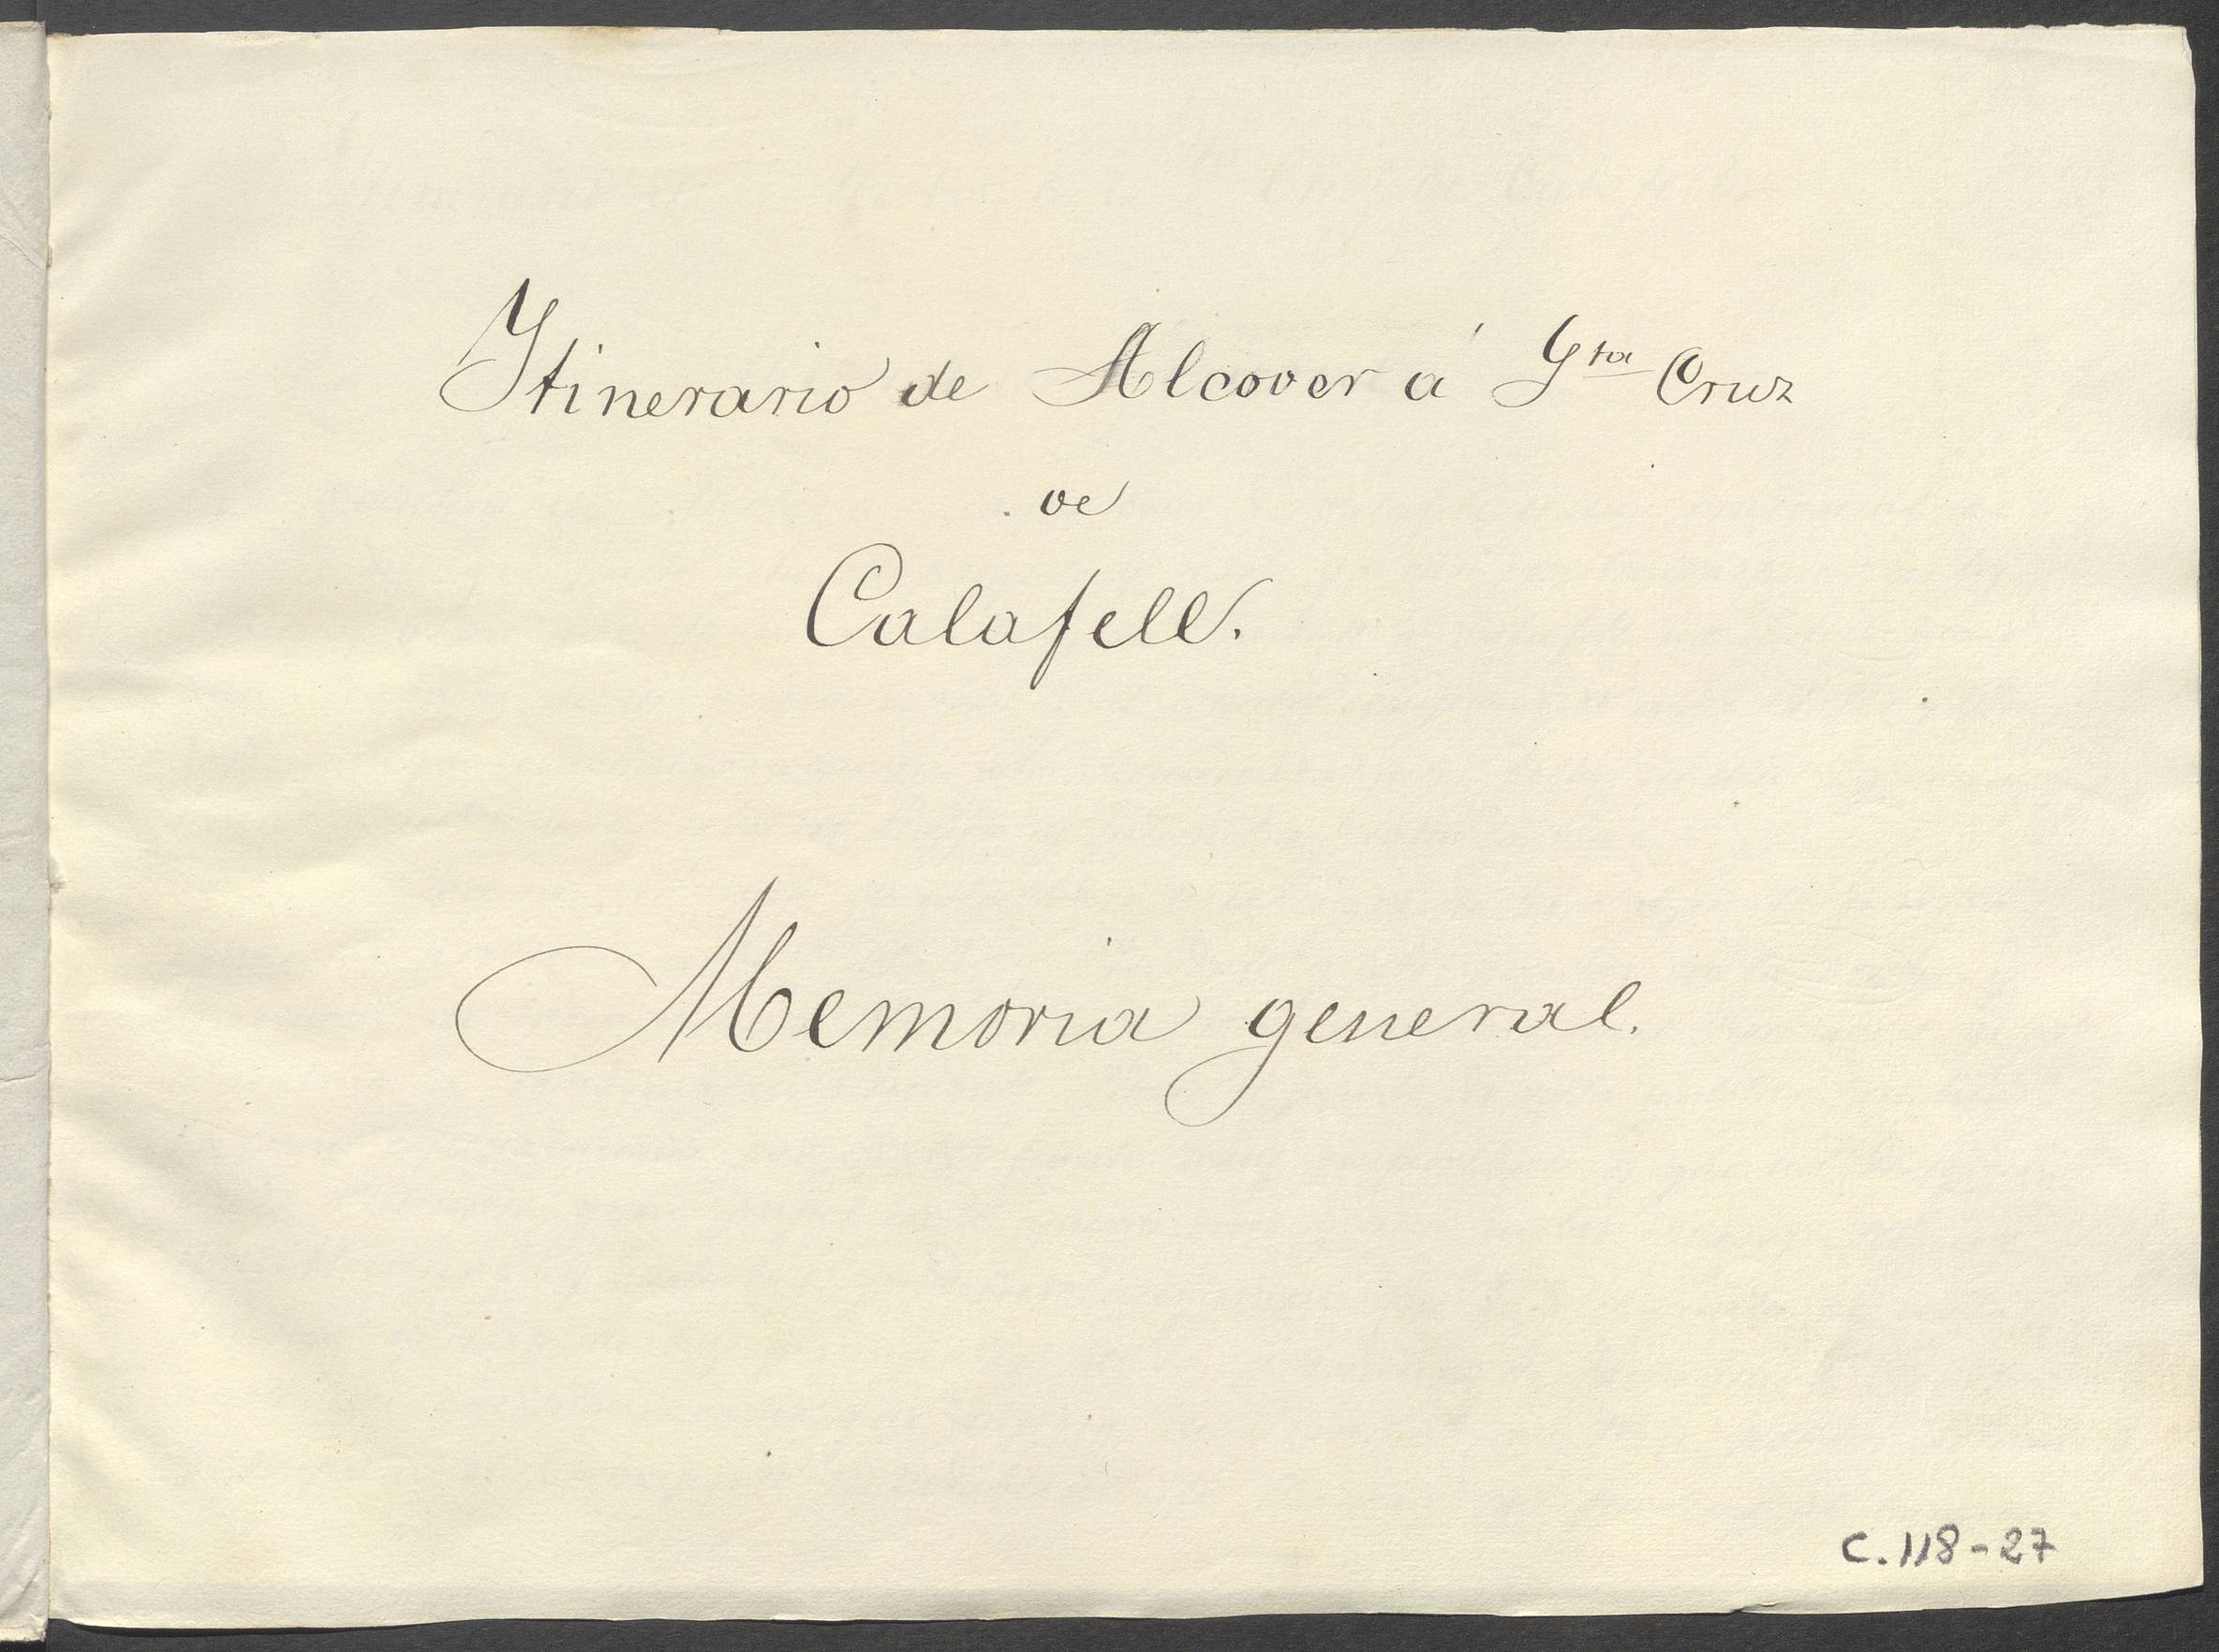 Ytinerario de Alcover á Sta Cruz
de
Calafell.
Memoria general.
C. 118-27